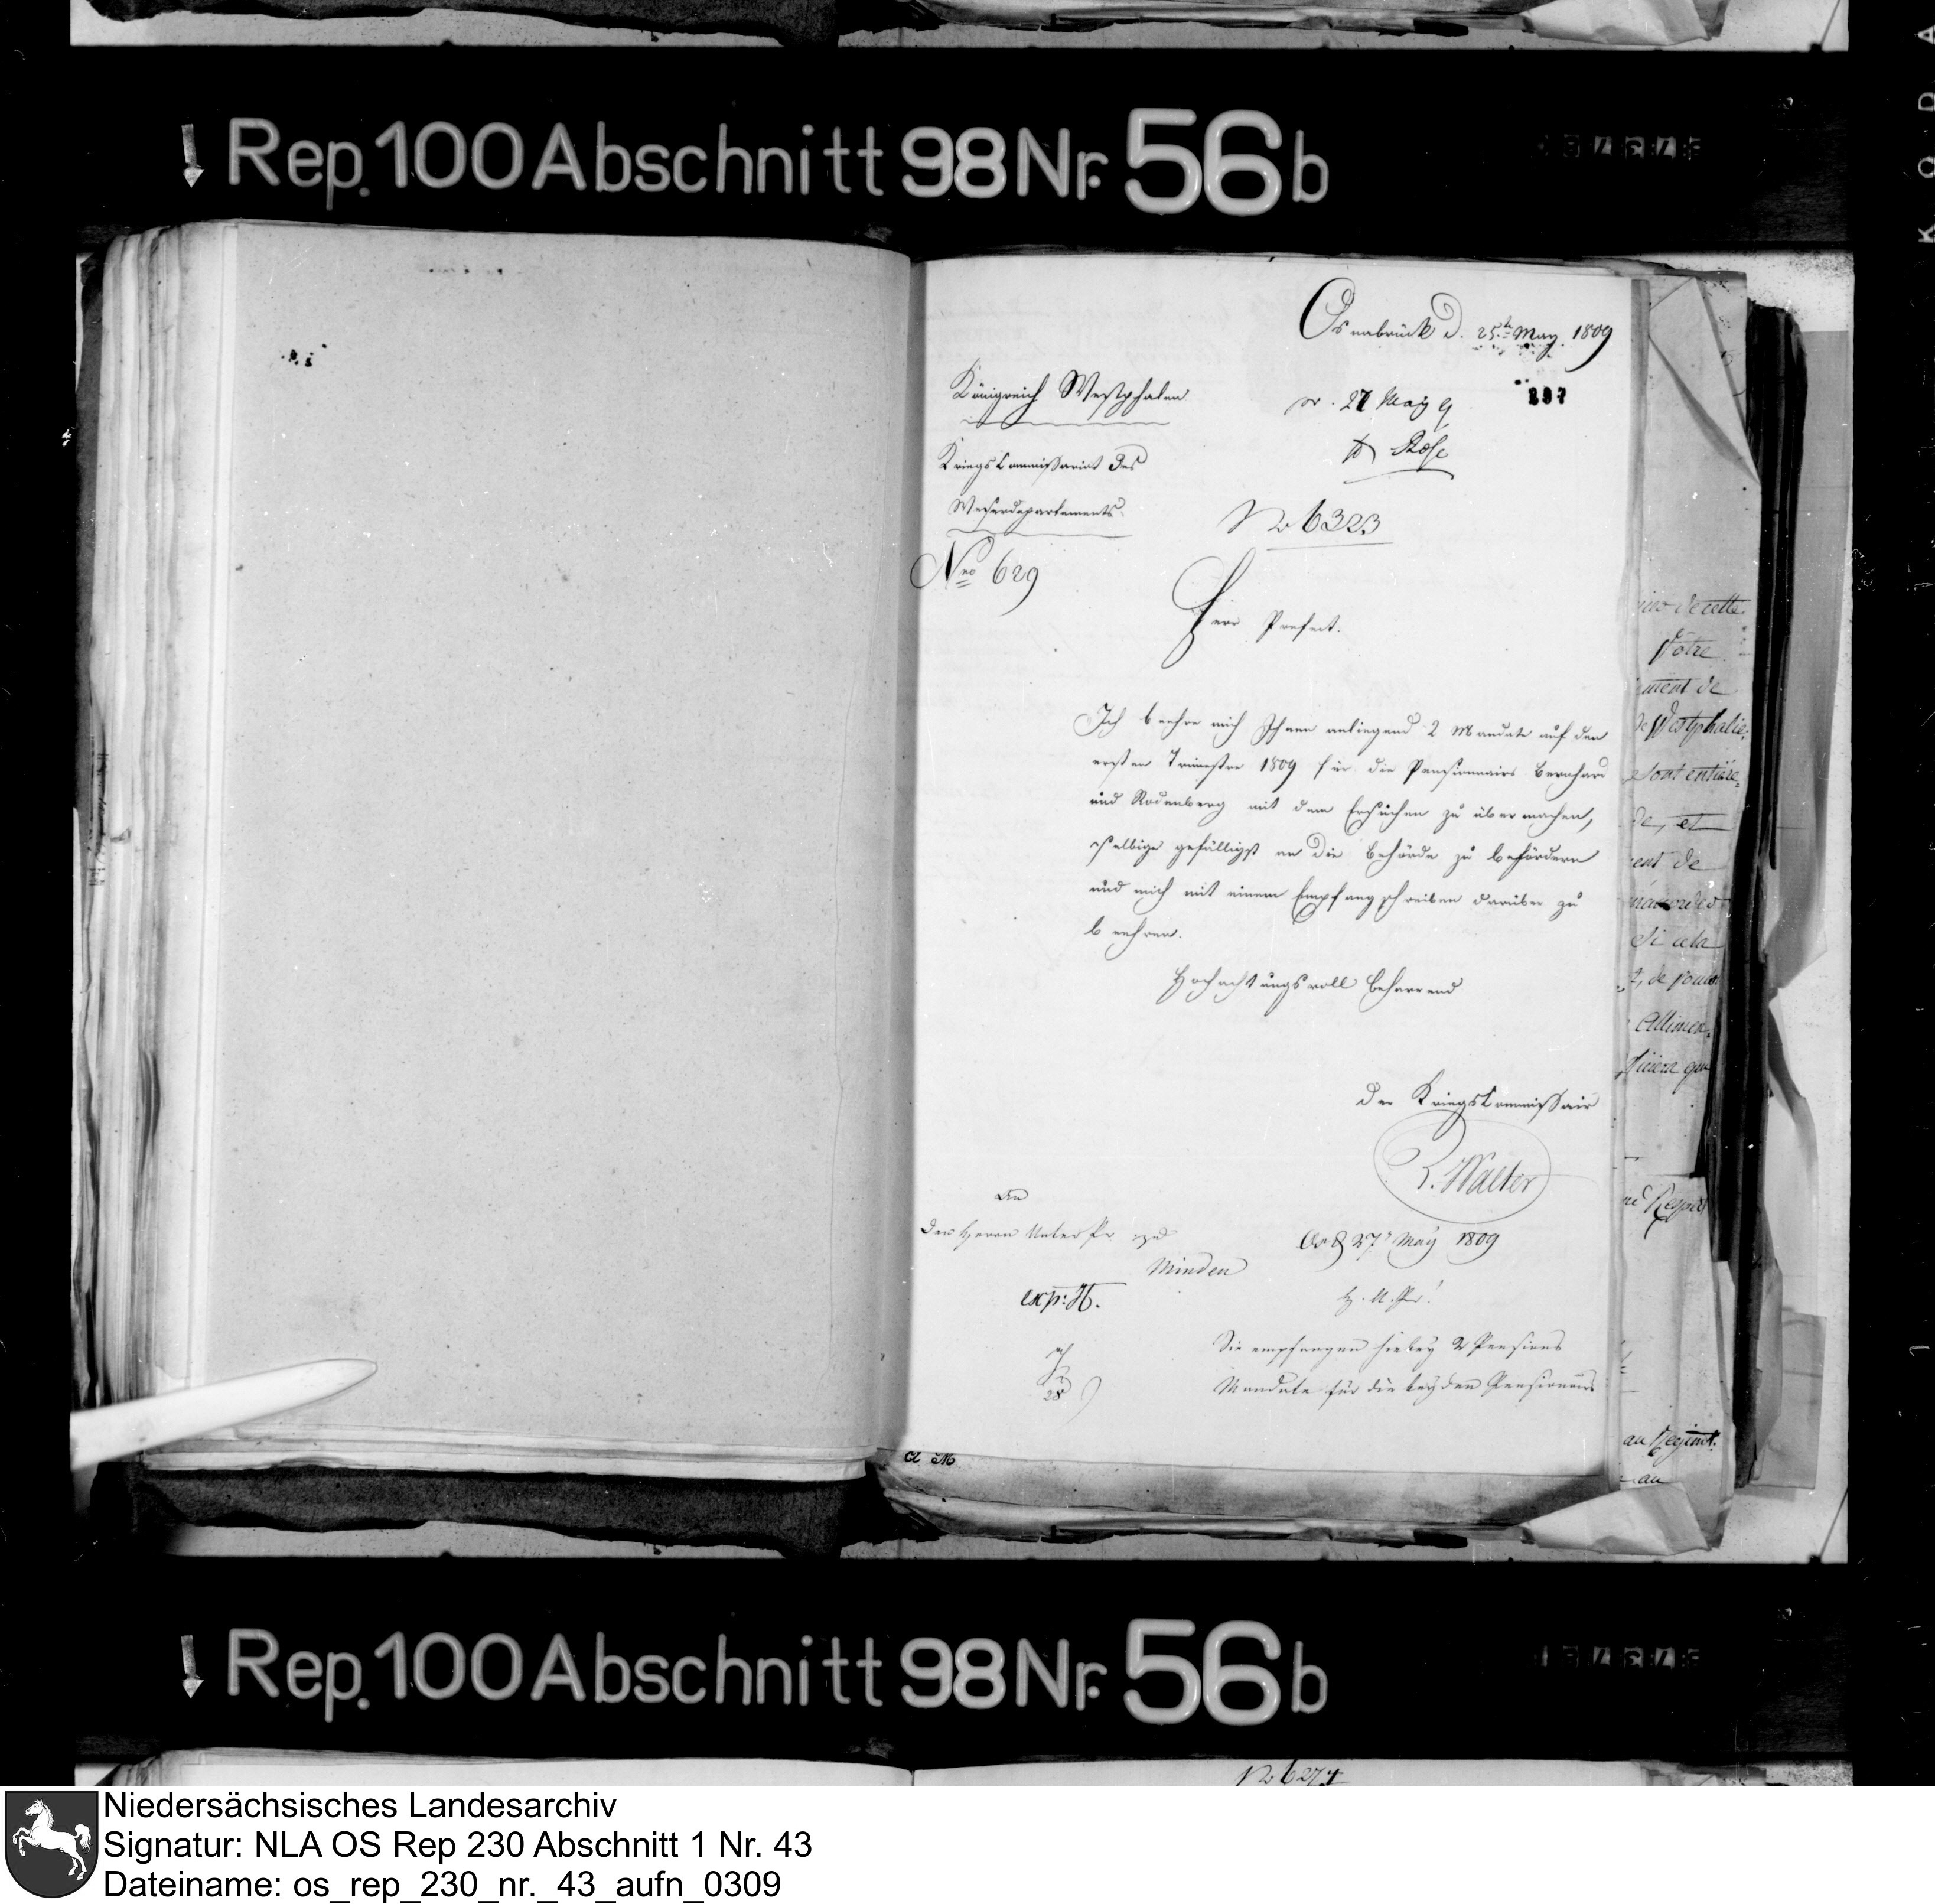 Rep. 100 Abschnitt 98 Nr. 56 b
Osnabrück d. 25.t May. 1809
Königreich Westphalen
pr. 27 May
297
Kriegs Commissariat des
Weserdepartements.
No 6323
Nro 629
Herr Prefect.
Ich beehre mich Ihnen anliegend 2 Mandate auf den
ersten Trimestre 1809 für die Pensionnairs Bernhard
und Rodenberg mit dem Ersuchen zu übermachen,
selbige gefälligst an die Behörde zu befördern
und mich mit einem Empfangschreiben darüber zu
beehren.
Hochachtungsvoll beharrend
Der KriegsCommissair
Walter
An
den Herrn Unter Pr
Minden
Os d 27t May 1809
exp:
H. U. Pr!
Sie empfangen hiebey 2 Pensions
Mandate für die beyden Pensionairs
28
no de cette
Votre
ement de
de Westphalie,
sont entière
de, et
ent de
Si cela
t, de vous
Allimen
au Regimt.
au
Rep. 100 Abschnitt 98 Nr. 56 b
Niedersächsisches Landesarchiv
Signatur: NLA OS Rep 230 Abschnitt 1 Nr. 43
Dateiname: os_rep_230_nr._43_aufn_0309